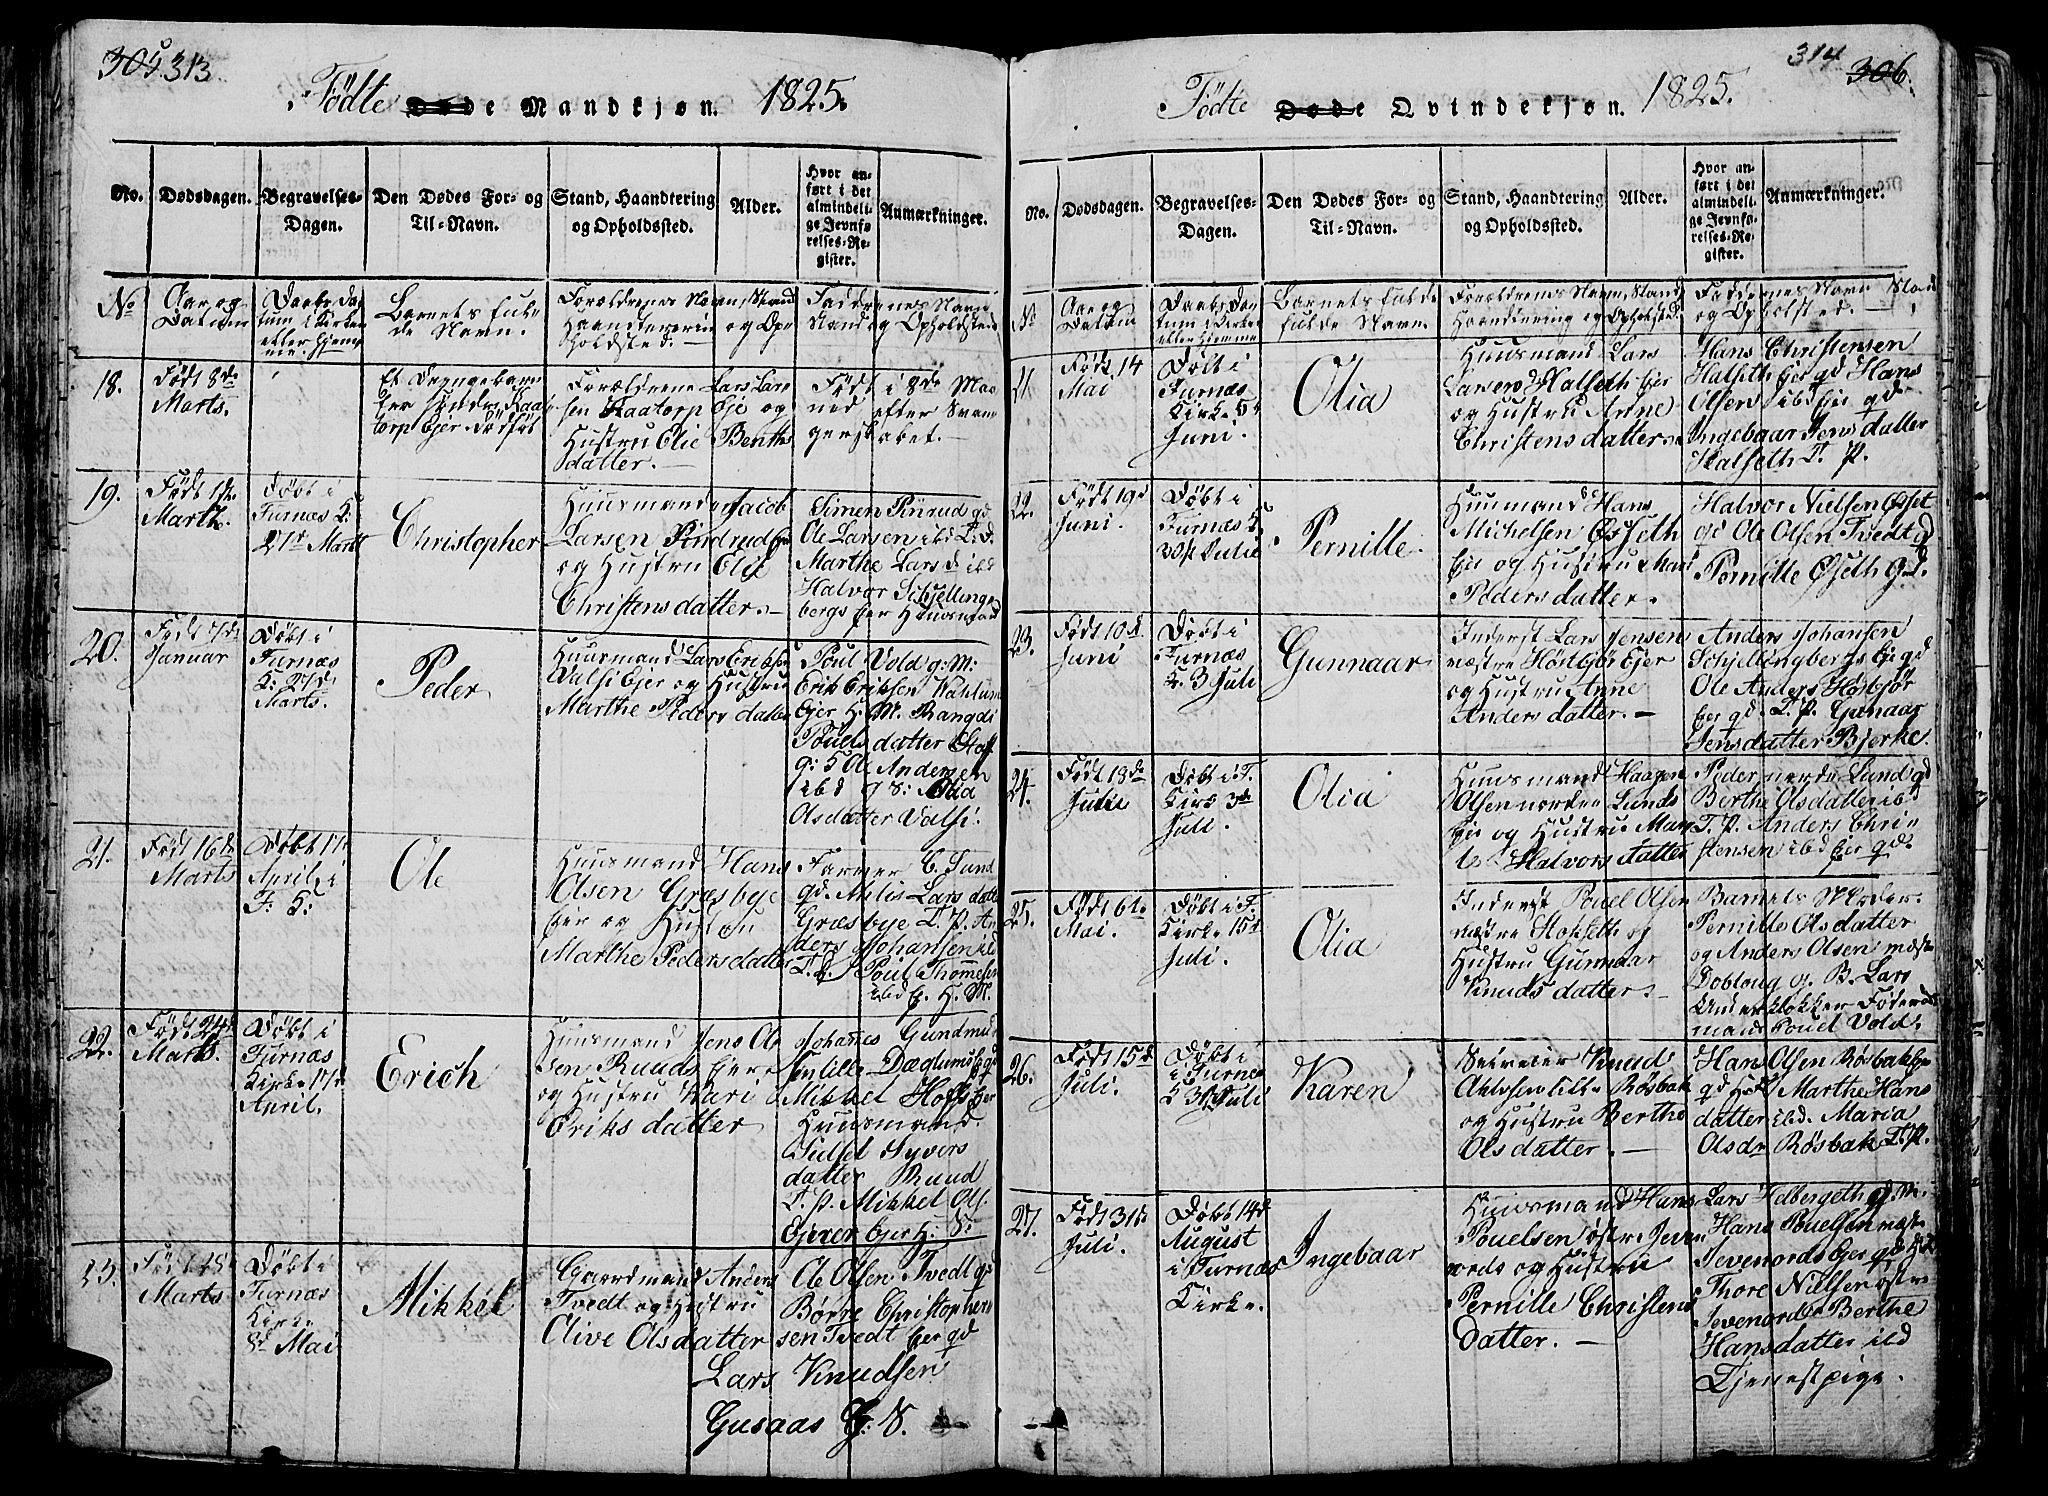 305. 313
Fødte Døde Mandkjøn. 1825.
No.
Dødsdagen.
Begravelses-
Dagen.
Den Dødes For- og
Til-Navn.
Stand, Haandtering
og Opholdssted.
Alder.
Hvor an-
ført i det
almindeli-
ge Jevnfø-
relses-Re-
gister.
Anmærkninger.
No
Aar og
Datum
Daabs Da-
tum i Kirken
eller Hjem-
me.
Barnets ful-
de Navn.
Forældrenes Navn, Stand
Haandtering og Op-
holdsted. —
Faddernes Navn
Stand og Opholdsted
18.
Født 8de
Marts.
Et Drengebarn
dødfød
Forældrene Lars Lar-
sen Kaatorp Eje og
Hustru Elie Benths
datter. —
Født i 8de Maa-
ned efter Svan-
gerskabet. —
19.
Født 1de
Marts.
Døbt i
Furnæs K:
27de Marts
Christopher
Huusmanden Jacob
Larsen Pindrud Eje
og Hustru Elie
Christensdatter. —
Simen Pinrud gd
Ole Larsen ibd
Marthe Lars d ibd
Halvor Schjellings-
bergs Ejer Huusmand
20.
Født 7de
Januar
Døbt i
Furnæs
K: 27de
Marts.
Peder
Huusmand Lars Eriksen
Valsi Ejer og Hustru
Marthe Pedersdatter
Poul Vold g: M:
Erik Eriksen Kaklum
Ejer H. M. Rangdi
Pouelsdatter Staf
g: S Ole Andersen
ibd g S: Olia
Olsdatter Valsi.
21.
Født 16de
Marts
Døbt 17de
April i
F: K:
Ole
Huusmand Hans
Olsen Græsbye
Ejer og Hustru
Marthe Pedersdatter
Farver C. Sund
gd. Ahlis Larsdatter
Græsbye T. P. An-
ders Johansen ibd
T. d. Poul Thomesen
ibd E. H. M.
22.
Født 24de
Marts.
Døbt i
Furnæs
Kirke 17de
April.
Erich
Huusmand Jens Ol-
sen Ruuds Ejere
og Hustru Kari
Eriksdatter
Johannes Gundmud-
sen lille Dæglum Ej gd
Mikkel Hoffs Ejer
Huusmand.
Sidsel Syvers
datter Ruud
T. P. Mikkel Ols.
Ejerer Ejer H. S:
23.
Født
Marts
Døbt i
Furnæs
Kirke
8de Mai
Mikkel
Gaardmand Anders
Tvedt og Hustru
Olive Olsdatter
Ole Olsen Tvedt gd
Børre Christopher-
sen Tvedt Ejer gd
Lars Knudsen
Gusaas G: S.
314 306.
Fødte Døde Qvindekjøn. 1825.
No.
Dødsdagen.
Begravelses-
Dagen.
Den Dødes For- og
Til-Navn.
Stand, Haandtering
og Opholdssted.
Alder.
Hvor an-
ført i det
almindeli-
ge Jevnfø-
relses-Re-
gister.
Anmærkninger.
No
Aar og
Datum
Daabs Da-
tum i Kirke
eller Hjemme
Barnets fulde
fulde Navn.
Forældrenes Navn, Stand
Haandtering og Opholdsted.
Faddernes Navn Stand
og Opholdsted. —
21.
Født 14
Mai
Døbt i
Furnæs
Kirke 5te
Juni.
Olia
Huusmand Lars
Larsen Halseth Ejer
og Hustru Anne
Christensdatter.
Hans Christensen
Halseth Ejer gd Hans
Olsen ibd Ejer gd
Ingebaar Jensdatter
Halseth T. P.
22.
Født 19d
Juni.
Døbt i
Furnæs K.
Julii
Pernille.
Huusmand Hans
Michelsen Øsseth
Eje og Hustru Mari
Pedersdatter.
Halvor Nielsen Øsset
gd Ole Olsen Tvedt gd
Pernille Øseth Gd.
23.
Født 10d
Juni
Døbt i
Furnæs
K. 3 Juli
Gunnaar
Inderst Lars Jensen
næstre Høsbjør Ejer
og Hustru Anne
Andersdatter. —
Anders Johansen
Schjellingbergs Eje gd
Ole Anders Høsbjør
Ejer gd. T. P. Gunaar
Jensdatter Bjerke.
24.
Født 18de
Julii
Døbt i F.
Kirke 3de
Juli.
Olia
Huusmand Haagen
Olsen nordre Lunds
Eje og Hustru Mar-
te Halvorsdatter
Peder nordre Lund gd
Berthe Olsdatter ibd
T. P. Anders Chri-
stensen ibd Ejer gd.
25.
Født 6te
Mai.
Døbt i F.
Kirke 15d
Juli.
Olia
Inderst Pouel Olsen
næstre Hokseth og
Hustru Gunnaar
Knudsdatter. —
Barnets Moder.
Pernille Olsdatter
og Anders Olsen næst
Doblong g. B. Lars
Underklokker Føderaad-
mand Pouel Vold.
26.
Født 15d
Juli.
Døbt i
i Furnes
K 31 Juli
Karen
Knud
lille Røsbak
og Hustru Berthe
Olsdatter. —
Hans Olsen Røsbak Eje
gd Marthe Hans
datter ibd. Maria
Olsdr Røsbak T. P.
27.
Født 31te
Juli.
Døbt 14d
August
i Furnæs
Kirke.
Ingebaar
Huusmand Hans
Pouelsen østre Jeven-
ords og Hustru
Pernille Christens
datter. —
Lars Helbergeth gd M.
Hans Pouelsen næst
Jevenords Ejer gd
Thore Nielsen østre
Jevenords Berthe
Hansdatter ibd
Tjenestpige.